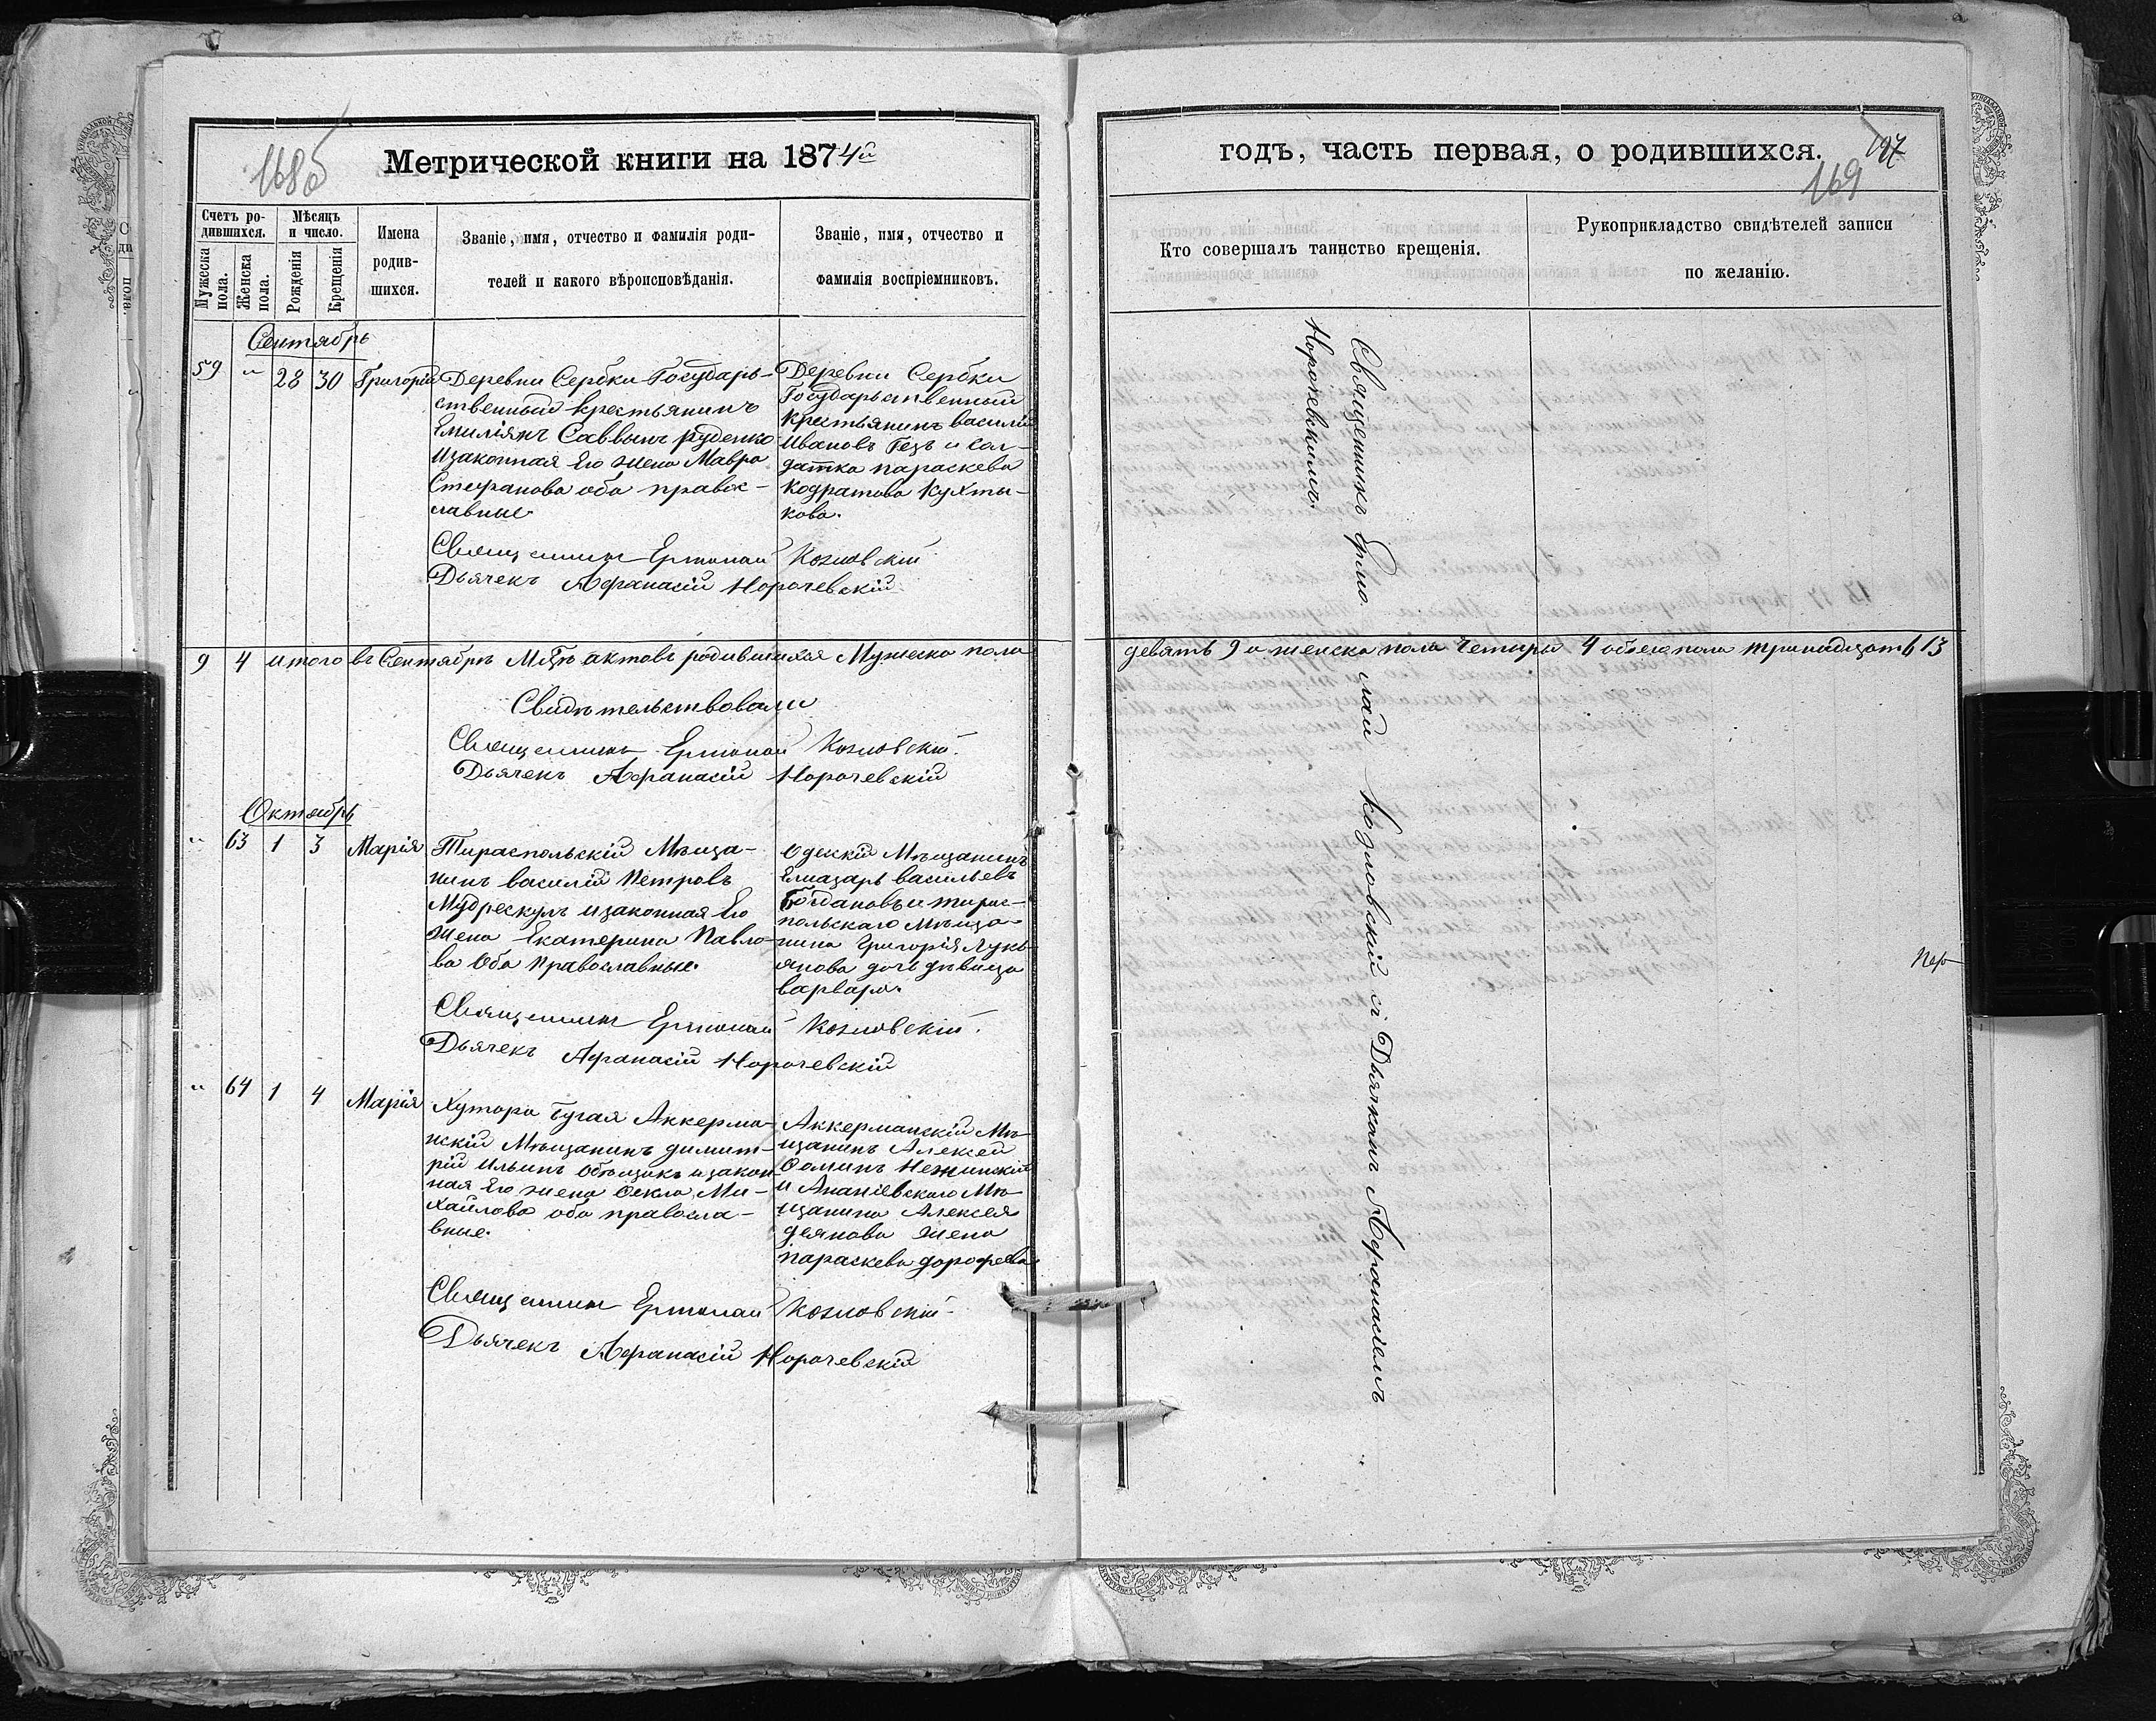 168об
Метрической книги на 1874й
Счетъ ро-
дившихся.
Мѣсяцъ
и число.
Мужеска
пола.
Женска
пола.
Рожденія
Крещенія
Имена
родив-
шихся.
Званіе, имя, отчество и фамилія роди-
телей и какого вѣроисповѣданія.
Званіе, имя, отчество и
фамилія воспріемниковъ.
Сентябрь
59 " 28 30 Григорій
Деревни Сербки Государь-
ственный крестьянинъ
Емиліянъ Саввинъ руденко
изаконная Его жена Мавра
Стефанова оба правос-
лавные.
Деревни Сербки
Государьственный
крестьянинъ василій
Ивановъ Гецъ и сол-
датка параскева
кодратова Кухты-
кова.
Священникъ Ермолай Козловскій
Дьячекъ Афанасій Норочевскій
9 4 итого въ Сентябрѣ Мцѣ актовъ родившихся Мужеска пола
Свидѣтельствовали
Священникъ Ермолай Козловскій.
Дьячекъ Афанасій Норочевскій
Октябрь
" 63 1 3 Марія
Тираспольскій Мѣща-
нинъ василій Петровъ
Мудрескулъ изаконная Его
Жена Екатерина Павло-
ва Оба Православные.
Одескій Мѣщанинъ
Елиазаръ васильевъ
Богдановъ и тирас-
польскаго Мѣща-
нина Григорія Лукь-
янова дочь дѣвица
варвара.
Священникъ Ермолай Козловскій.
Дьячекъ Афанасій Норочевскій
" 64 1 4 Марія
Хутора Бугая Аккерма-
нскій Мѣщанинъ димит-
рій Ильинъ Объщикъ изакон-
ная Его жена Ѳекла Ми-
хайлова оба правосла-
вные.
Аккерманскій Мѣ-
щанинъ Алексей
Ѳоминъ Нежинскій
и Ананіевскаго Мѣ-
щанина Алексея
деянова жена
параскева дорофеева
Священникъ Ермолай Козловскій.
Дьячекъ Афанасій Норочевскій
годъ, часть первая, о родившихся.
197
169
Кто совершалъ таинство крещенія.
Рукоприкладство свидѣтелей записи
по желанію.
Священникъ Ермо лай Козловскій съ Дьякомъ Афанасіемъ
Норочевскимъ.
девять 9 а женска пола четыри 4 обоего пола тринадцать 13